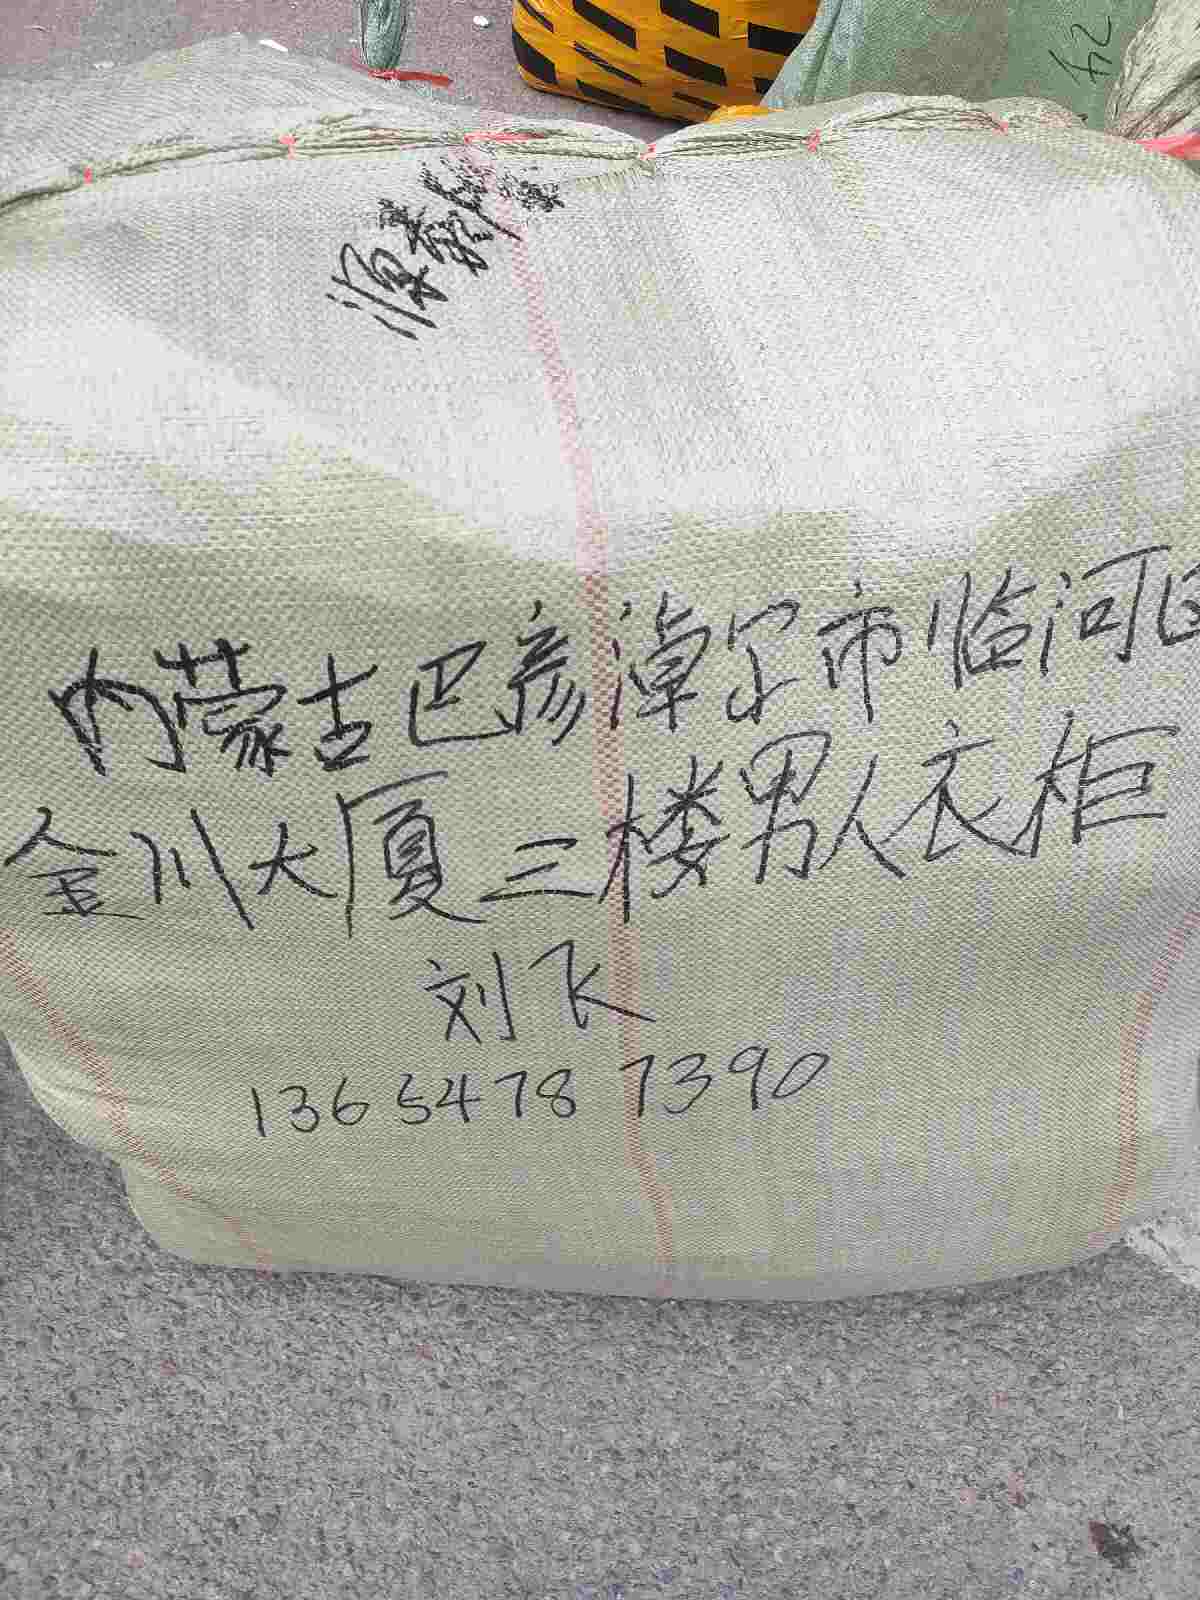 源
内蒙古巴彦淖尔市临河区
金川大厦三楼男人衣柜
刘飞
13654787390